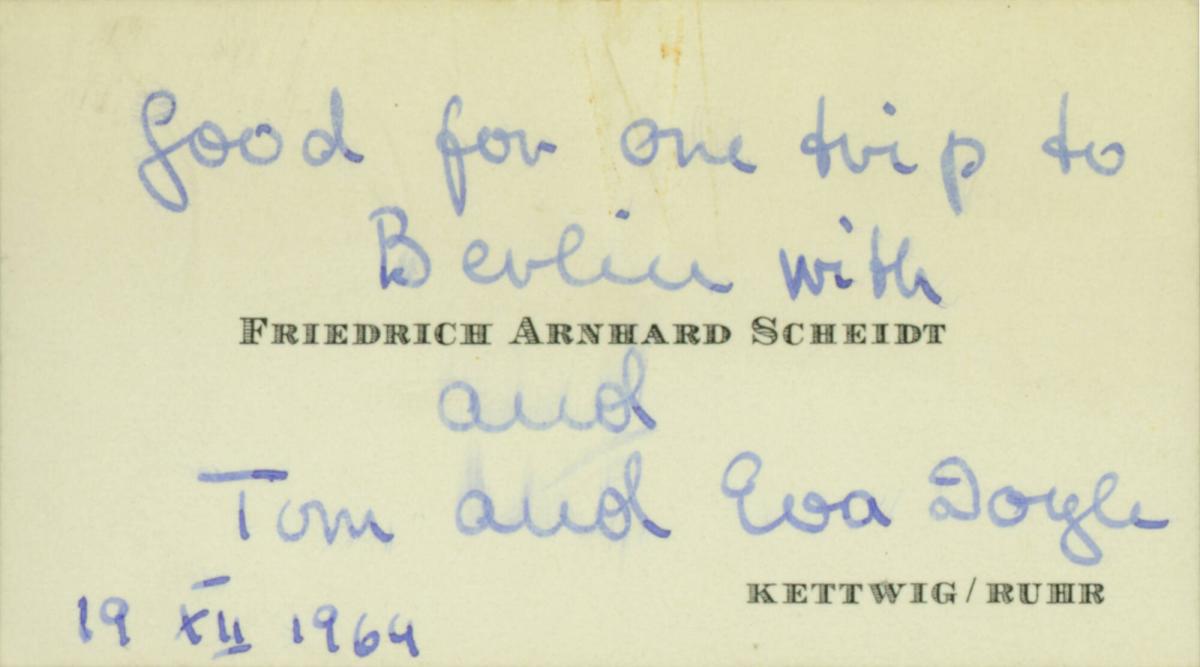 Good for one trip to
Berlin with
FRIEDRICH ARNHARD SCHEIDT
and
Tom and Eva Doyle
KETTWIG/RUHR
19 XII 1964